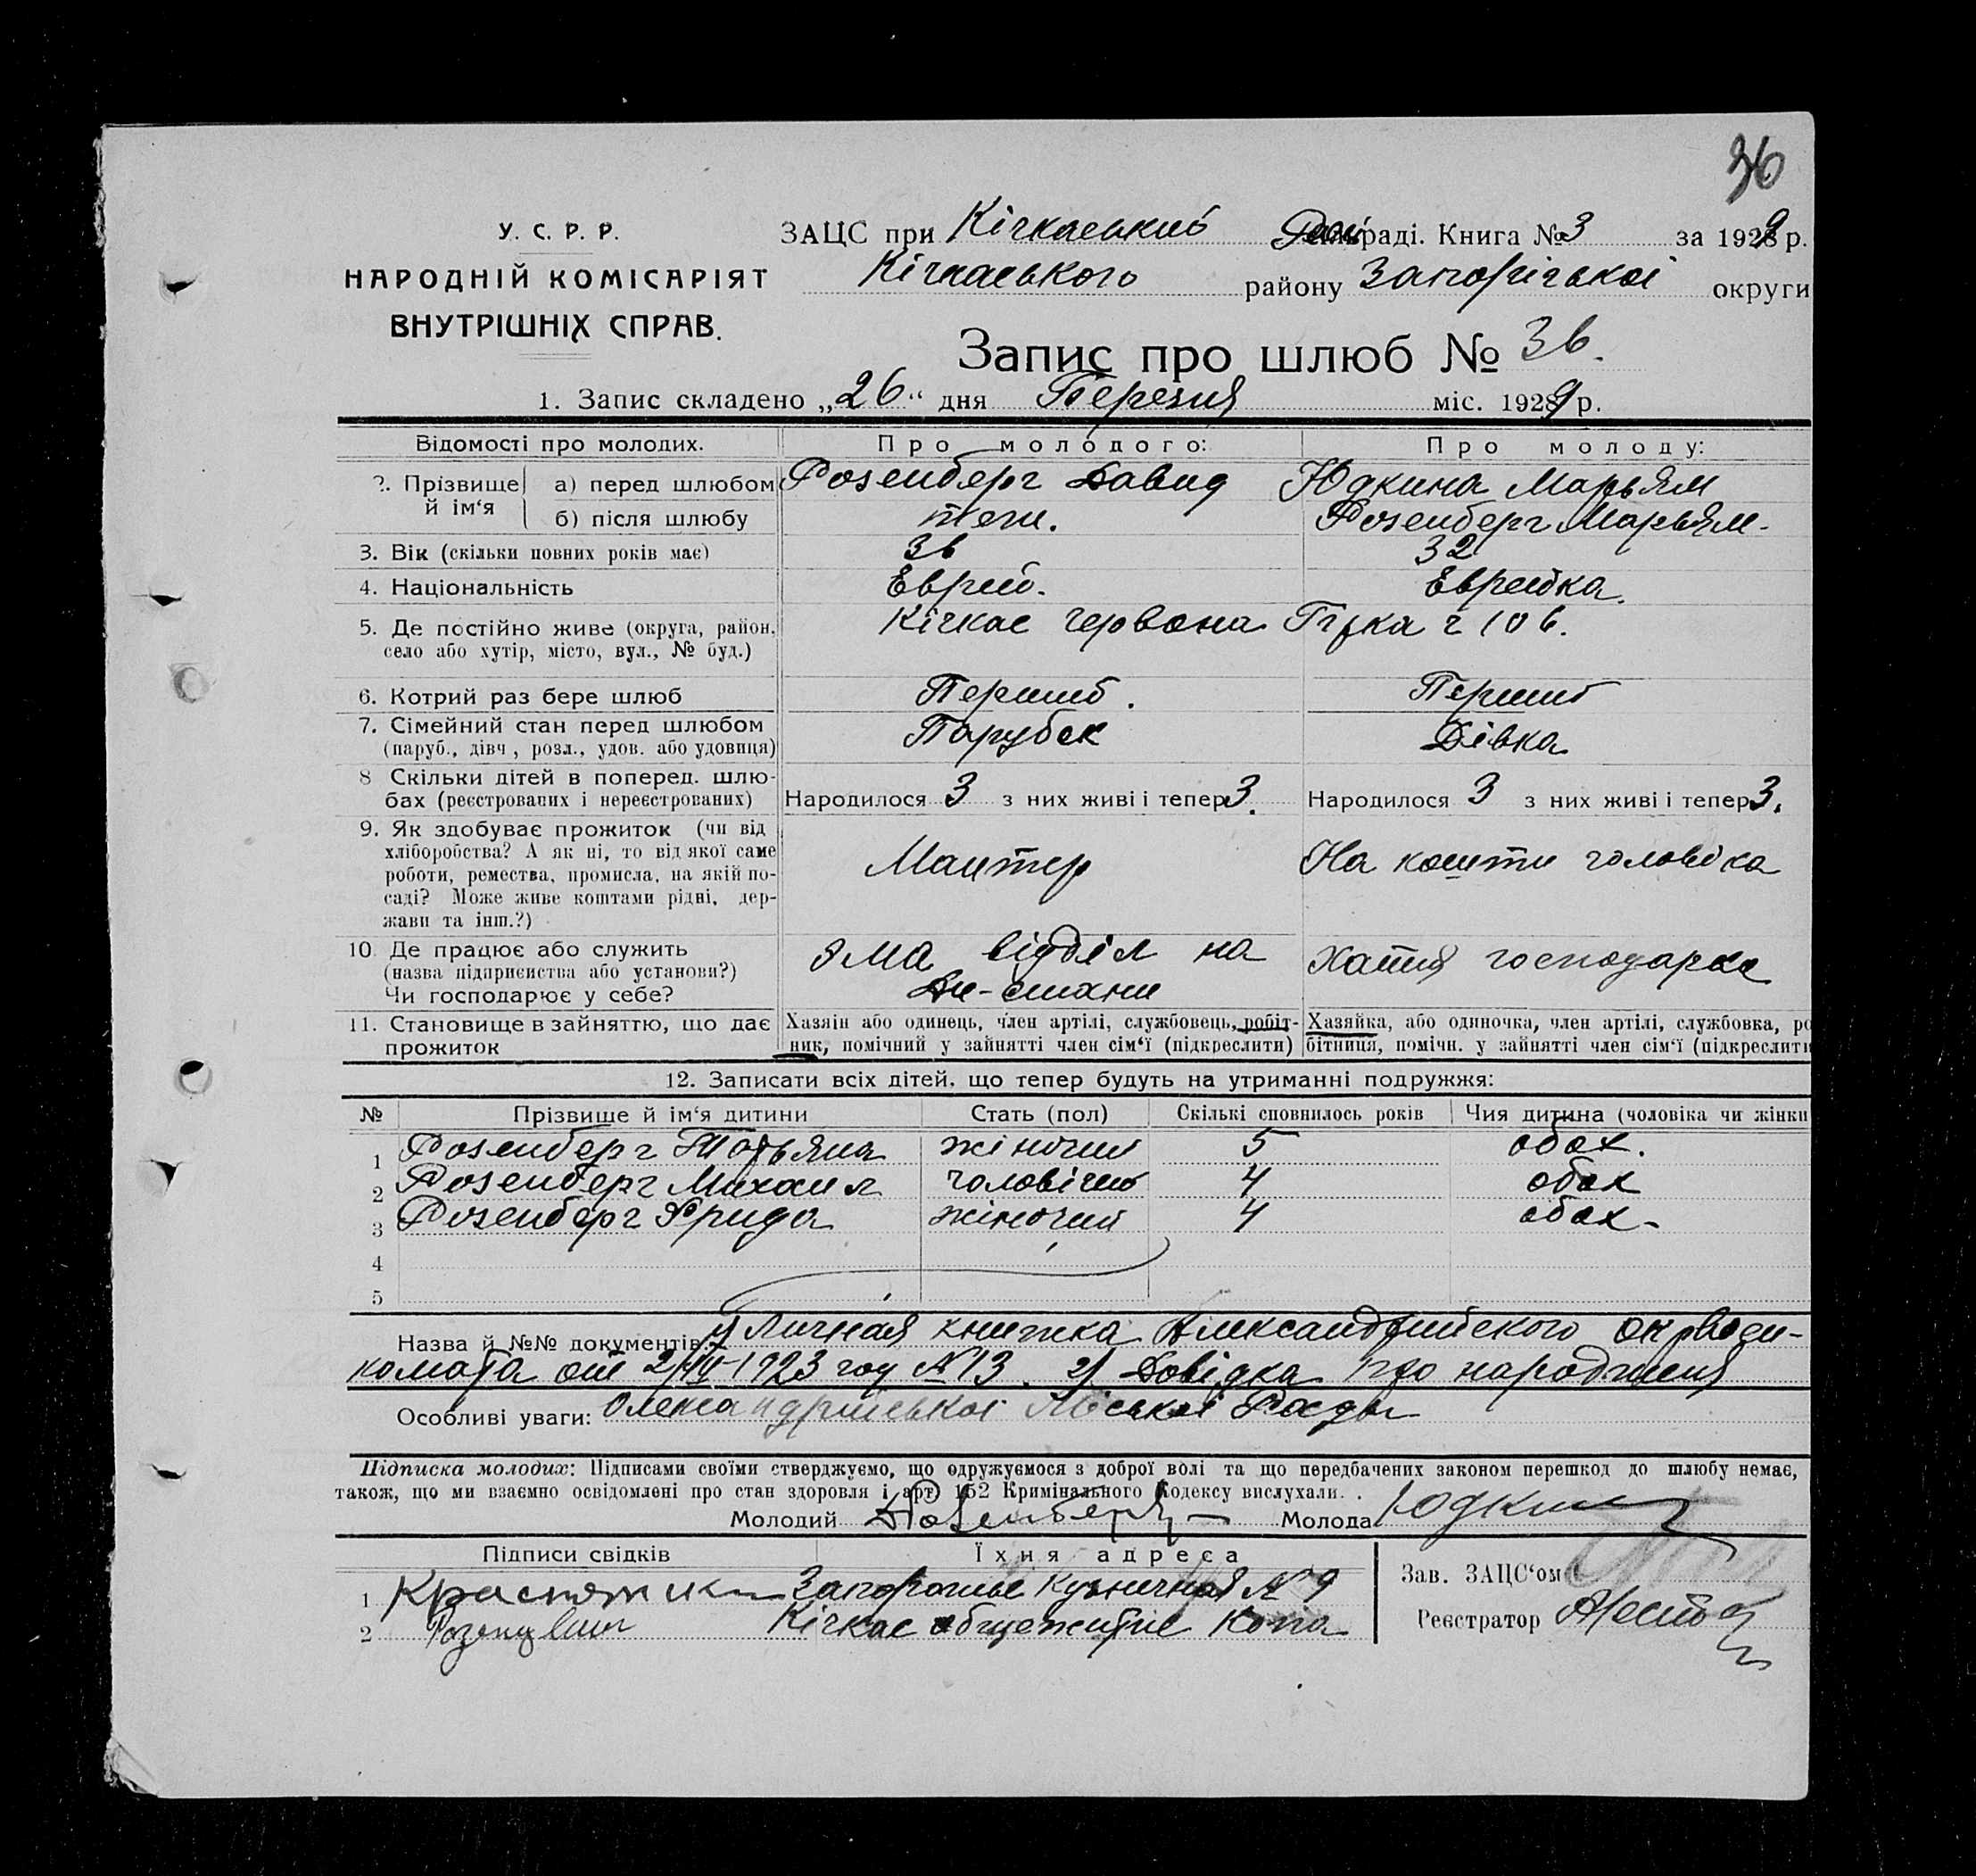 36
У. С. Р. Р.
НАРОДНІЙ КОМІСАРІЯТ
ВНУТРІШНІХ СПРАВ.
ЗАЦС при Кічкаський раді. Книга № 3 за 1929 р.
Кічкаського району Запорізької округи
Запис про шлюб № 36.
1. Запис складено „26“ дня Березня міс. 1929 р.
Відомості про молодих. Про молодого: Про молоду:
2. Прізвище й ім‘я а) перед шлюбом Розенберг Давид Юдкина Марьям
б) після шлюбу теж. Розенберг Марьям-
3. Вік (скільки повних років має) 36 32
4. Національність Еврей. Еврейка.
5. Де постійно живе (округа, район, Кічкас Червона Гірка ч 106.
село або хутір, місто, вул., № буд.)
6. Котрий раз бере шлюб Перший. Перший
7. Сімейний стан перед шлюбом Парубок Дівка
(паруб., дівч, розл., удов. або удовиця)
8 Скільки дітей в поперед. шлю-
бах (реєстрованих і нереєстрованих) Народилося 3 з них живі і тепер 3. Народилося 3 з них живі і тепер 3.
9. Як здобуває прожиток (чи від
хліборобства? А як ні, то від якої саме
роботи, ремества, промисла, на якій по- Маштер На кошти чоловіка
саді? Може живе коштами рідні, дер-
жави та інш.?)
10 Де працює або служить відділ на Хатня господарка
(назва підприємства або установи?)
Чи господарює у себе?
11. Становище в зайняттю, що дає Хазяїн або одинець, член артілі, службовець, робіт- Хазяйка, або одиночка, член артілі, службовка, ро
прожиток ник, помічний у зайнятті член сім‘ї (підкреслити) бітниця, помічн. у зайнятті член сім‘ї (підкреслити
12. Записати всіх дітей, що тепер будуть на утриманні подружжя:
№ Прізвище й ім‘я дитини Стать (пол) Скількі сповнилось років Чия дитина (чоловіка чи жінки
1 Розенберг Татьяна жіночий 5 обох.
2 Розенберг Михаил чоловічий 4 обох
3 Розенберг Фрида жіночий 4 обох-
4
5
Назва й №№ документів: 1/ Личная книжка Александрийского окрвоен-
комата от 1923 году № 13. 2/ Довідка про народження
Особливі уваги: Олександрійської Міської Рады
Підписка молодих: Підписами своїми стверджуємо, що одружуємося з доброї волі та що передбачених законом перешкод до шлюбу немає,
також, що ми взаємно освідомлені про стан здоров‘я і арт. 152 Кримінального Кодексу вислухали.
Молодий Розенберг Молода Юдкина
Підписи свідків Їхня адреса
1 Запорожье Кузнечная № 9 Зав. ЗАЦС‘ом
2 Кічкас общежитие Реєстратор